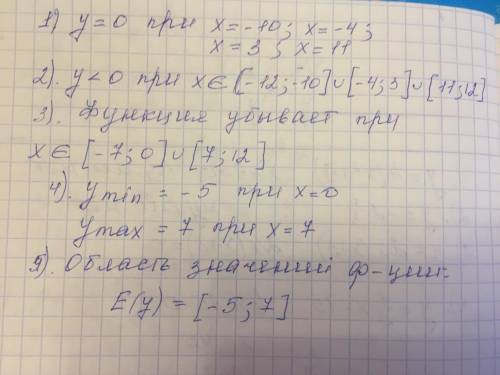 1) y=0 при x=-10; x=-4;
x=3; x=11
2). y<0 при x∈[-12;-10]∪[-4;3]∪[11;12]
3). Функция убывает при
x∈[-7;0]∪[7;12]
4). ymin = -5 при x=0
ymax = 7 при x=7
5). Область значений ф-ции:
E(y) = [-5;7]